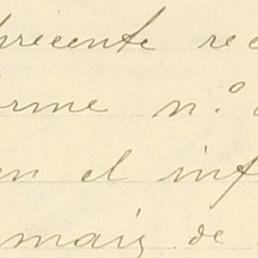 precente re
rme n.o
n el inf
maiz de